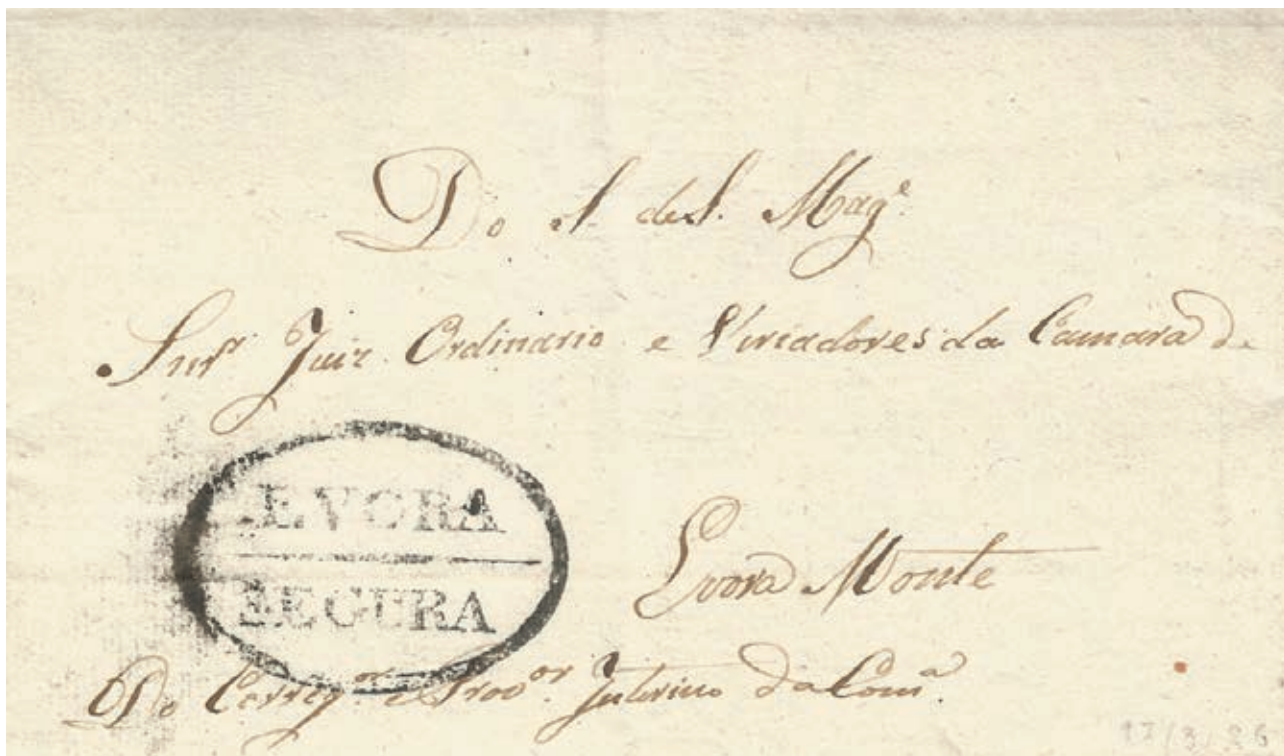 Do S. de S. Mag.e
Snr.r Juiz Ordinario e Viriadores da Camara de
EVORA
SEGURA
Evora Monte
Do Correg.or e Prov.or Interino da Com.a